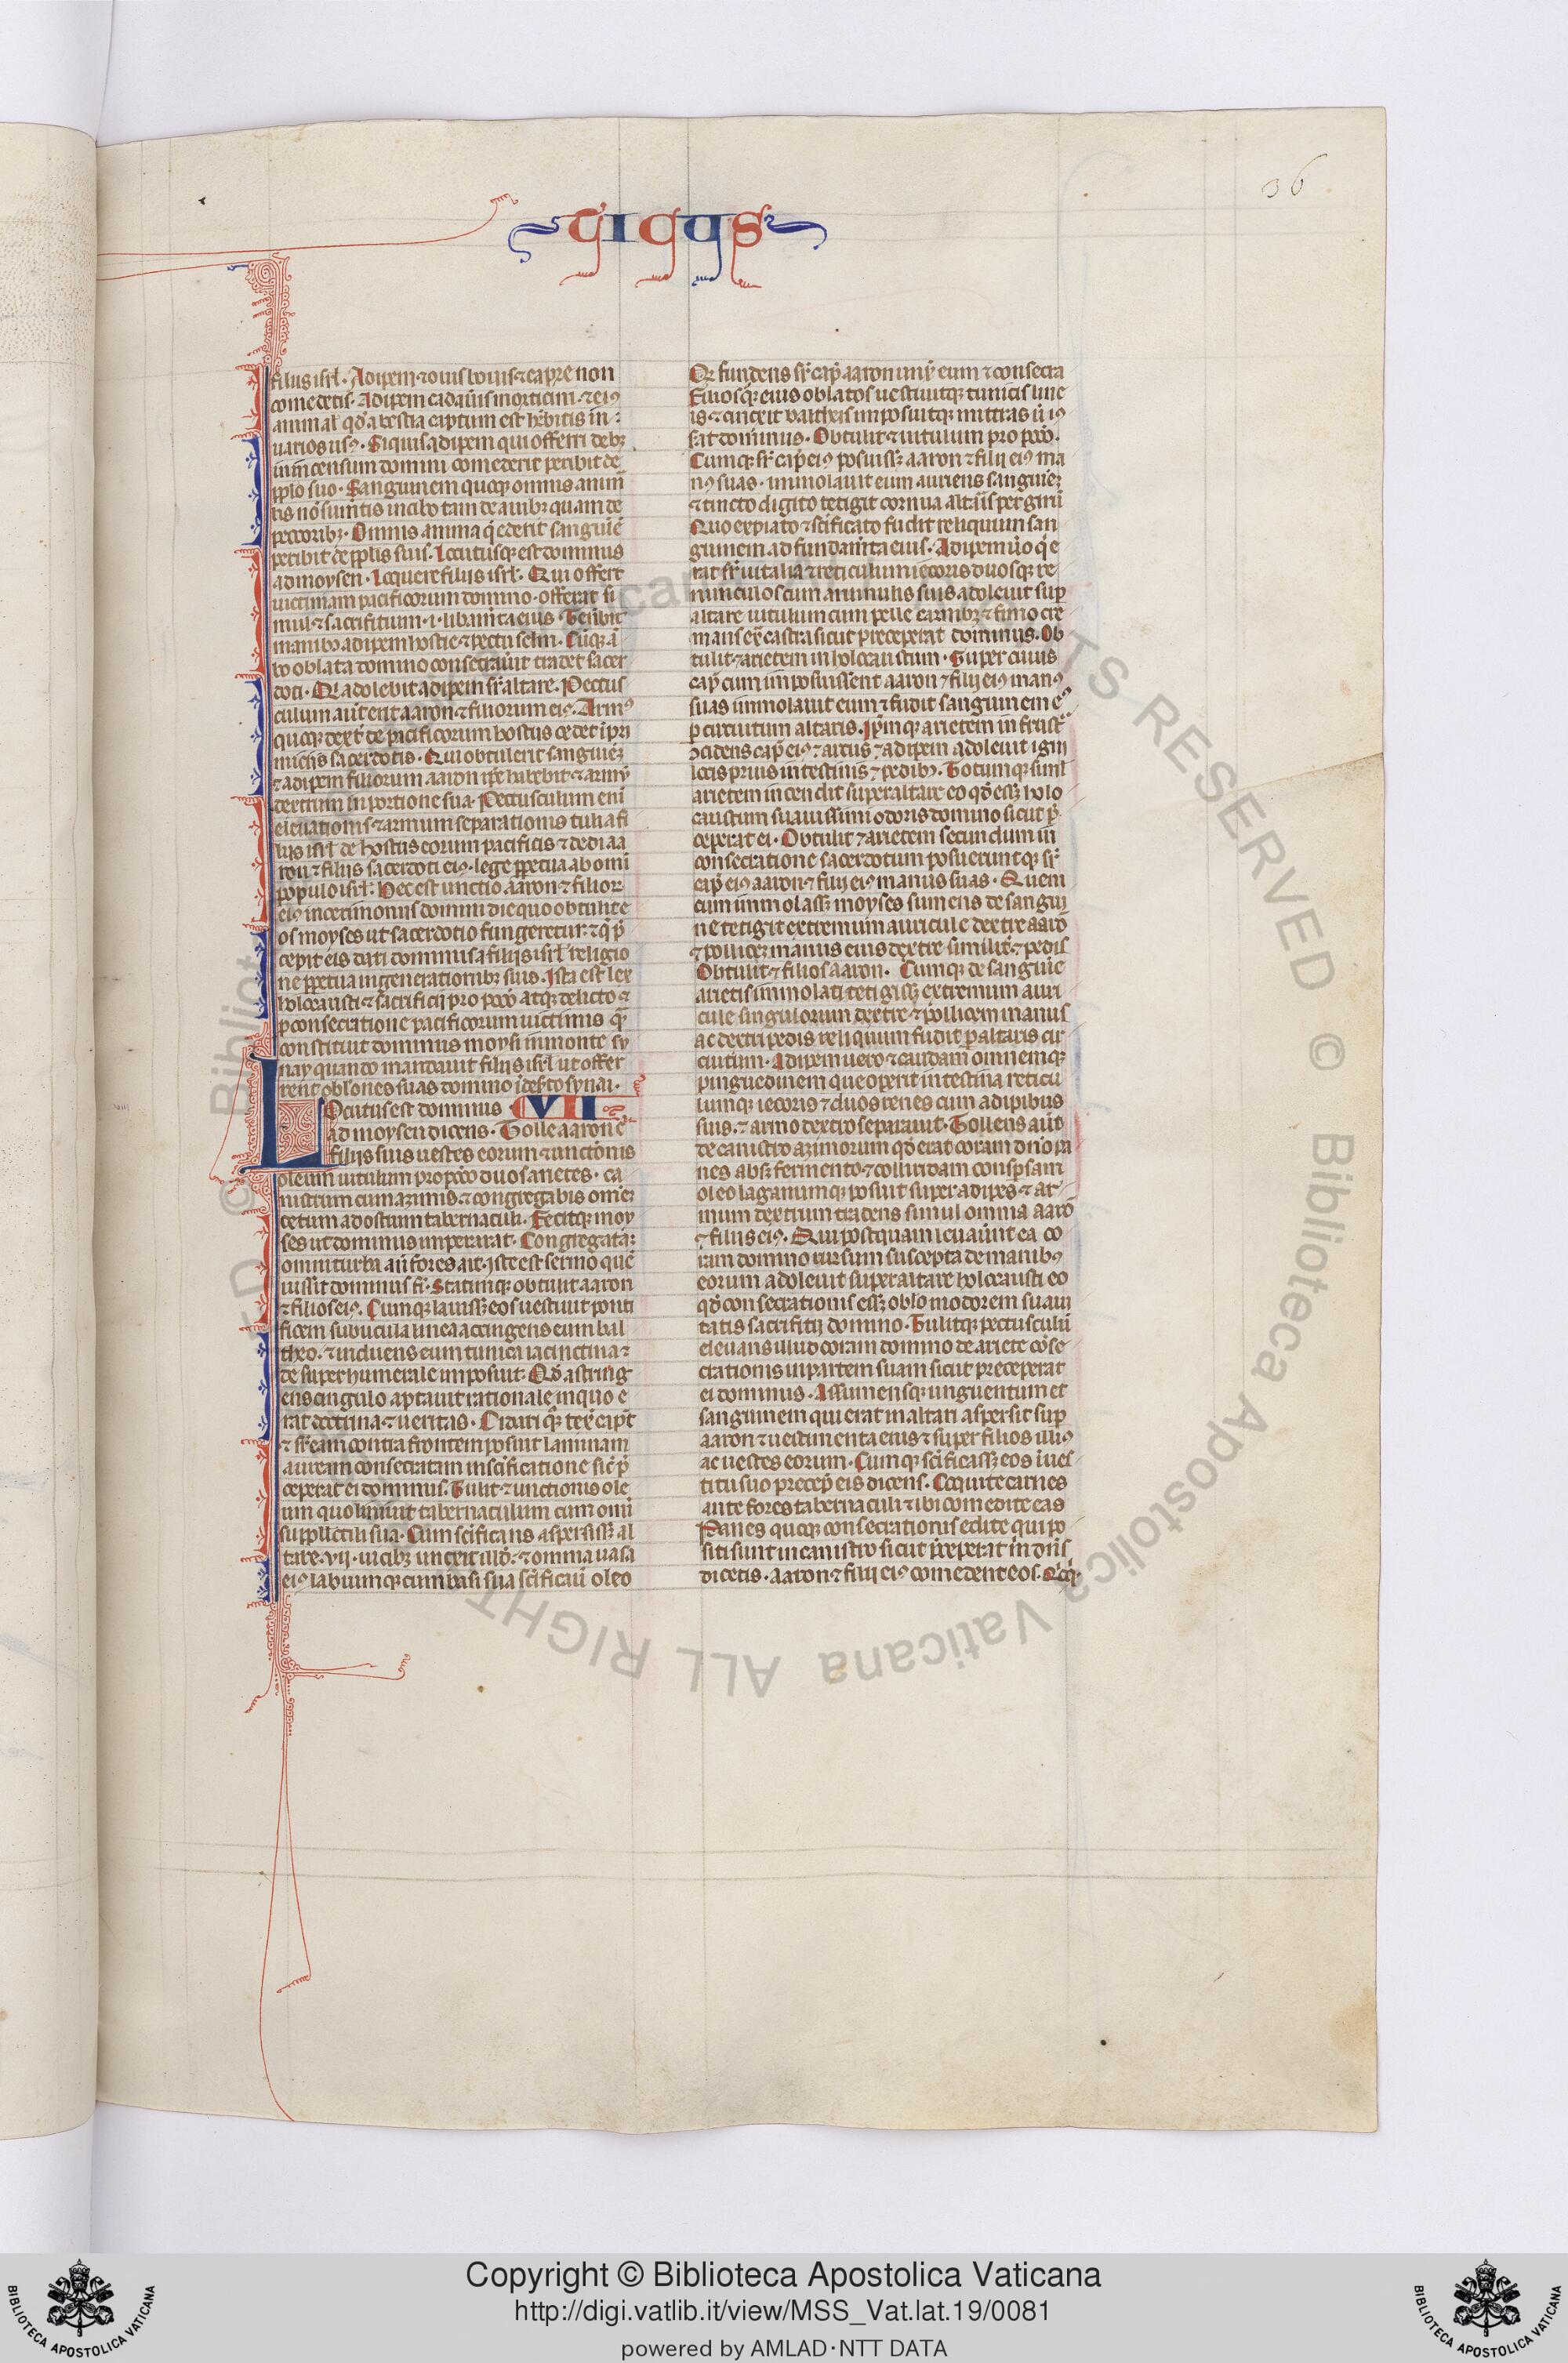 36
TICUS
filiis isrl̄. Adipem ⁊ ouis bouis ⁊ capre non
comedetis. Adipem cadauis morticini. ⁊ eiꝰ
animal qd̓ a bestia captum est hēbitis in:
uarios usꝰ. Siquis adipem qui offerri debꝫ
in incensum domini comederit peribit de
pplo suo. Sanguinem quoqꝫ omnis anim̄
lis nō sumetis in cibo tam de auibꝫ quam de
pecoribꝫ. Omnis anima q̄ ederit sanguinē
peribit de pplis suis. Locutusqꝫ est dominus
ad moysen. Loquere filiis isrl̄. Qui offert
uictimam pacificorum domino. offerat si
mul ⁊ sacrificium. i. libamīta eius. Tenebit
manibꝫ adipem hostie ⁊ pectusclm. Cūqꝫ ā
bo oblata domino consecrauīt tradet sacer
doti. Qr adolebit adipem sr̄ altare. Pectus
culum aūt erit aaron ⁊ filiorum eiꝰ. Armꝰ
quoqꝫ dext̓ de pacificorum hostiis cedet ī pri
micijs sacerdotis. Qui obtulerit sanguinē
⁊ adipem filiorum aaron ip̄e habebit ⁊ armū
dextrum in portione sua. Pectusculum eni
eleuationis ⁊ armum separationis tuli a fi
lijs isrl̄ de hostiis eorum pacificis ⁊ dedi aa
ron ⁊ filiis sacerdoti eiꝰ. lege ppetua ab omī
populo isrl̄. Hec est unctio aaron ⁊ filioꝝ
eiꝰ in cerimoniis domini die quo obtulit e
os moyses ut sacerdotio fungeretur. ⁊ q̄ p̄
cepit eis dari dominus a filijs isrl̄ religio
ne ppetua in generationibꝫ suis. Ista est lex
holocausti ⁊ sacrificij pro pccō atqꝫ delicto ⁊
p consecratione pacificorum uictimis q̄
constituit dominus moysi in monte sy
nay quando mandauit filijs isrl̄ ut offer
rent obl̄ones suas domino ī deserto synai.
Locutus est dominus VII
ad moysen dicens. Tolle aaron c̄
filijs suis uestes eorum ⁊ unctionis
oleum uitulum pro pccō duos arietes. ca
nistrum cum azimis. ⁊ congregabis omnē
cetum ad ostium tabernaculi. Fecitqꝫ moy
ses ut dominus imperarat. Congregataqꝫ
omni turba aū fores ait. Iste est sermo quē
iussit dominus fr̄. Statimqꝫ obtulit aaron
⁊ filios eiꝰ. Cumqꝫ lauissꝫ eos uestiuit ponti
ficem subucula linea accingens eum bal
theo. ⁊ induens eum tunica iacinctina ⁊
de super humerale imposuit. Qd̓ astring
ens cingulo aptauit rationale in quo e
rat doctrina ⁊ ueritas. Cidari qꝫ texē capt
⁊ sr̄ eam contra frontem posuit laminam
auream consecratam in scīficatione sic̄ p̄
ceperat ei dominus. Tulit ⁊ unctionis ole
um quo liniuit tabernaculum cum omī
suppllectili sua. Cum scīficans aspersissꝫ al
tare. vij. uicibꝫ unxit illd̓. ⁊ omnia uasa
eiꝰ labiumqꝫ cum basi sua scīficauī oleo
Qr fundens sr̄ cap̄ aaron unxī eum ⁊ consecra
Filiosqꝫ eius oblatos uestiuitqꝫ tunicis line
is ⁊ cinxit baltheis imposuitqꝫ mittras ū iꝰ
sat dominus. Obtulit ⁊ uitulum pro pccō.
Cumqꝫ sr̄ cap̄ eiꝰ posuissꝫ aaron ⁊ filij eiꝰ ma
nꝰ suas. immolauit eum auriens sanguinē
⁊ tincto digito tetigit cornua altaris per girū
Quo expiato ⁊ scīficato fudit reliquum san
guinem ad fundamīta eius. Adipem ū̓o q̄ e
rat sr̄ uitalia ⁊ reticulum iecoris duosqꝫ re
nunculos cum arunulis suis adoleuit sup̄
altare uitulum cum pelle carnibꝫ ⁊ fimo cre
mans ex̄ castra sicut preceperat dominus. Ob
tulit ⁊ arietem in holocaustum. Super cuius
cap̄ cum imposuissent aaron ⁊ filij eiꝰ manꝰ
suas immolauit eum ⁊ fudit sanguinem eꝰ
p circuitum altaris. Ip̄umqꝫ arietem in frustꝰ
ꝯcidens cap̄ eiꝰ ⁊ artus ⁊ adipem adoleuit igni
lotis prius intestinis ⁊ pedibꝰ. Totumqꝫ siml̄
arietem incendit super altare eo qd̓ essꝫ holo
caustum suauissimi odoris domino sicut p̄
ceperat ei. Obtulit ⁊ arietem secundum in
consecratione sacerdotum posueruntqꝫ sr̄
cap̄ eiꝰ aaron ⁊ filij eiꝰ manus suas. Quem
cum immolassꝫ moyses sumens de sangui
ne tetigit extremum auricule dextre aarō
⁊ pollicē manus eius dextre similiꝉ ⁊ pedis
Obtulit ⁊ filios aaron. Cumqꝫ de sanguine
arietis immolati tetigissꝫ extremum auri
cule singulorum dextre ⁊ pollicem manus
ac dextri pedis reliquum fudit p altaris cir
cuitum. Adipem uero ⁊ caudam omnemqꝫ
pinguedinem que operit intestina reticu
lumqꝫ iecoris ⁊ duos renes cum adipibus
suis. ⁊ armo dextro separauit. Tollens aūt
de canistro azimorum qd̓ erat coram dn̄o pa
nes absqꝫ fermento ⁊ colliridam conspsam
oleo laganumqꝫ posuit super adipes ⁊ ar
mum dextrum tradens simul omnia aarō
⁊ filiis eiꝰ. Qui postquam leuauīnt ea co
ram domino rursum suscepta de manibꝰ
eorum adoleuit super altare holocausti eo
qd̓ consecrationis essꝫ obl̄o in odorem suaui
tatis sacrifitij domino. Tulitqꝫ pectusculū
eleuans illud coram domino de ariete cōse
crationis in partem suam sicut preceperat
ei dominus. Assumensqꝫ unguentum et
sanguinem qui erat in altari aspersit sup̄
aaron ⁊ uestimenta eius ⁊ super filios illiꝰ
ac uestes eorum. Cumqꝫ scīficassꝫ eos ī ues
titu suo precep̄ eis dicens. Coquite carnes
ante fores tabernaculi ⁊ ibi comedite eas
Panes quoqꝫ consecrationis edite qui po
siti sunt in canistro sicut p̄ceperat m̄ dn̄s
dicetis. aaron ⁊ filij eiꝰ comedent eos. Qicqꝫ
Copyright © Biblioteca Apostolica Vaticana
http://digi.vatlib.it/view/MSS_Vat.lat.19/0081
powered by AMLAD·NTT DATA